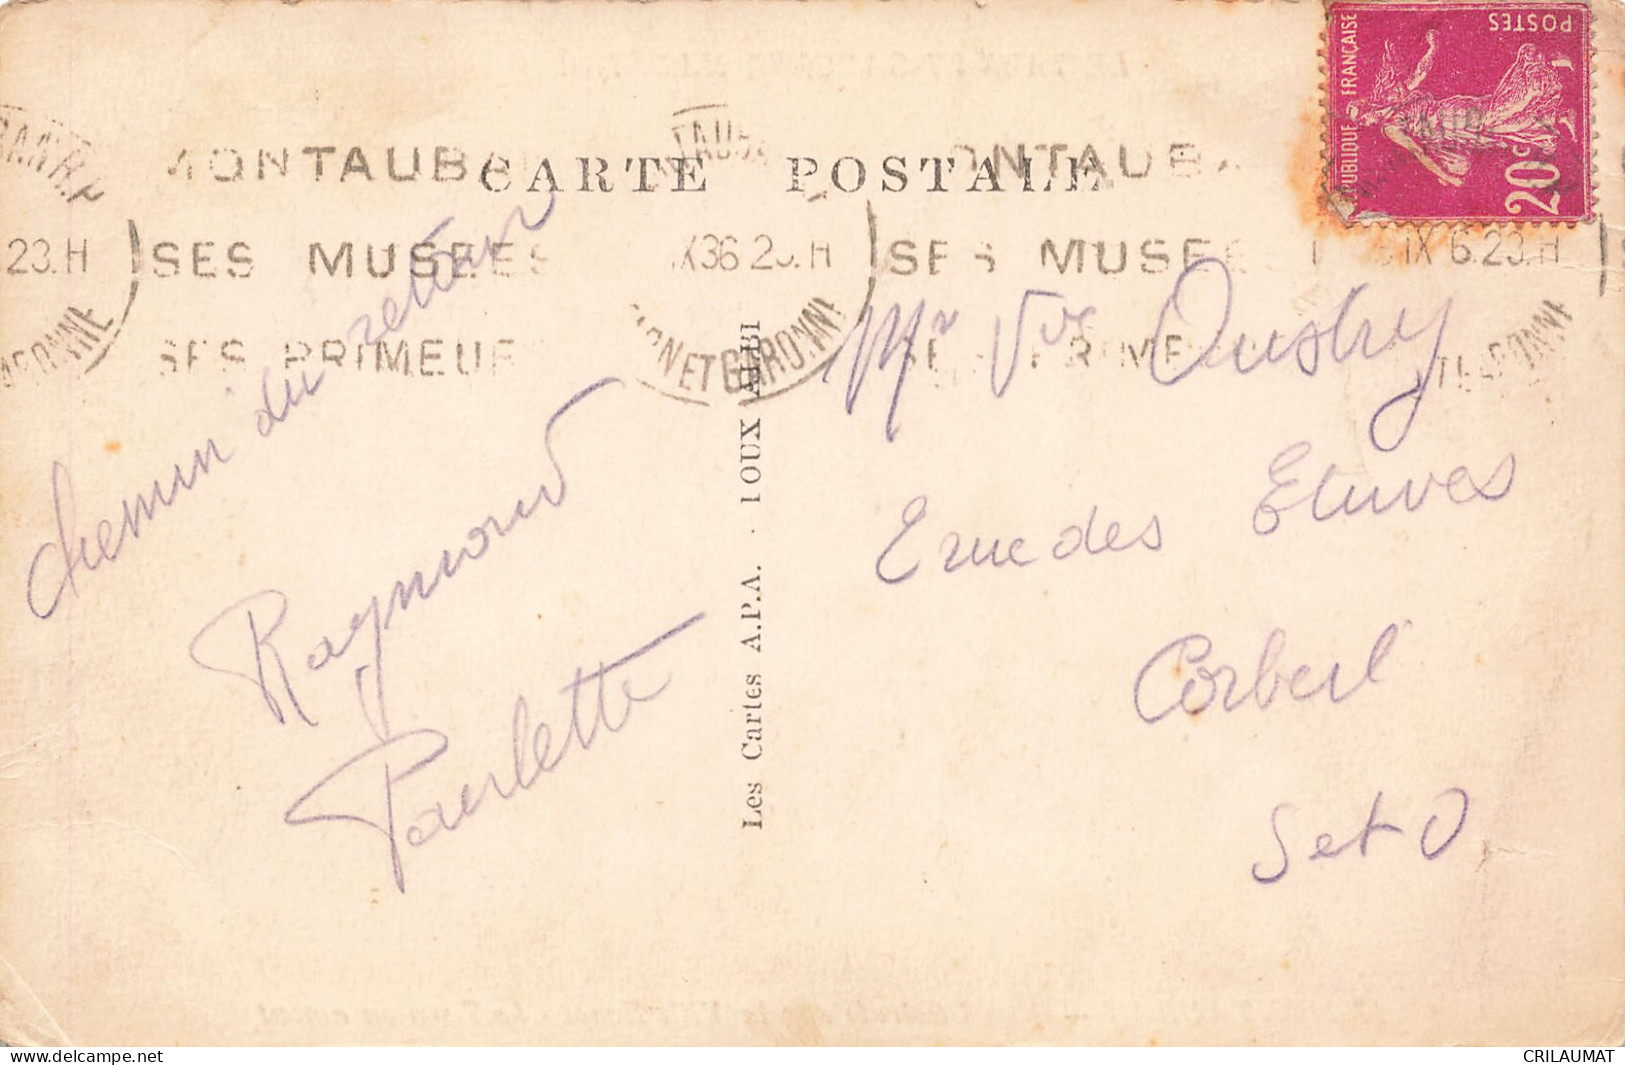 CARTE POSTALE
POSTES
RÉPUBLIQUE FRANÇAISE
20c
MONTAUBAN
SES MUSEES
SES PRIMEURS
23.H
GARONNE
MONTAUBAN
IX36 23.H
TARN ET GARONNE
MONTAUBAN
SES MUSEES
SES PRIMEURS
IX 6.23.H
GARONNE
chemin du retour
Raymond
Paulette
Les Cartes A.P.A. - POUX ALBI
Mr Vve Oustry
rue des Etuves
Corbeil
S et O
CRILAUMAT